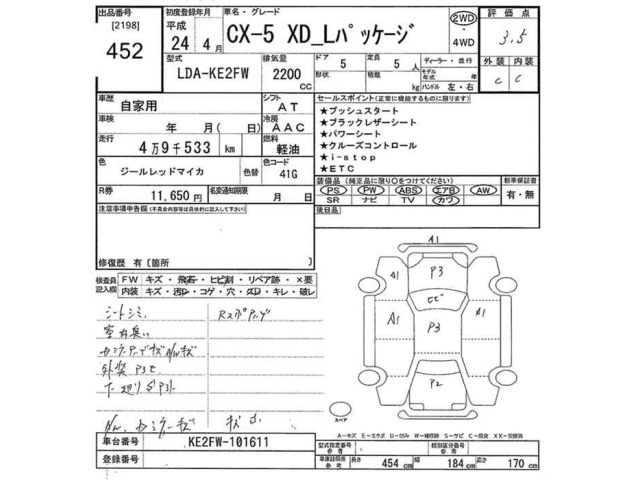 出品番号 初度登録年月 車名・グレード 評価点
[2198] 平成
452 24年 4月 CX-5 XD_Lパッケージ 2WD・4WD 3.5
型式 排気量 ドア 定員 ディーラー・並行 外装 内装
LDA-KE2FW 2200cc 5 5人 C C
形状 積載 kg モデル年式 年
ハンドル 左・右
車歴 自家用 シフト AT セールスポイント(正常に機能するものに限ります)
車検 年 月( 日) 冷房 AAC ★プッシュスタート
★ブラックレザーシート
走行 4万9千533 km 燃料 軽油 ★パワーシート
★クルーズコントロール
色 ジールレッドマイカ 色替 色コード 41G ★i-stop
★ETC
R券 11,650円 名変通知期限 月 日 装備品(純正品に限り○をつけてください) 新車保証書
PS PW ABS エアB AW 有・無
SR ナビ TV カワ
注意事項申告欄(不具合内容等は具体的に記入して下さい) 後日品
修復歴 有[箇所 ]
検査員記入欄 FW キズ・飛石・ヒビ割・リペア跡・×要
内装 キズ・汚れ・コゲ・穴・スレ・キレ・破レ
A1
A1 P3
ヒビ
A1 P3 A1
P2
シートシミ
室内臭い
外装 P3セ
スペア
A-キズ E-エクボ U-凹み W-補修跡 S-サビ C-腐食 XX-交換済
車台番号 KE2FW-101611 型式指定番号 参考 類別区分番号 参考
登録番号 車庫証明用参考 長さ 454cm 幅 184cm 高さ 170cm